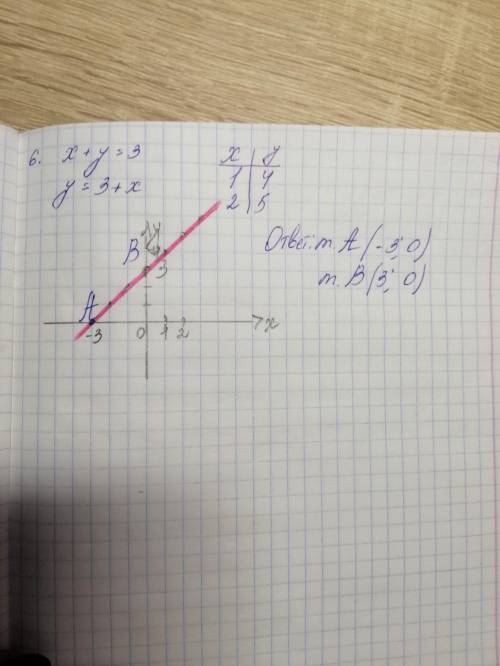 6. x + y = 3
y = 3 + x
x | y
1 | 4
2 | 5
Ответ: т. A (-3; 0)
т. B (3; 0)
y
B
3
A
-3 0 1 2 x